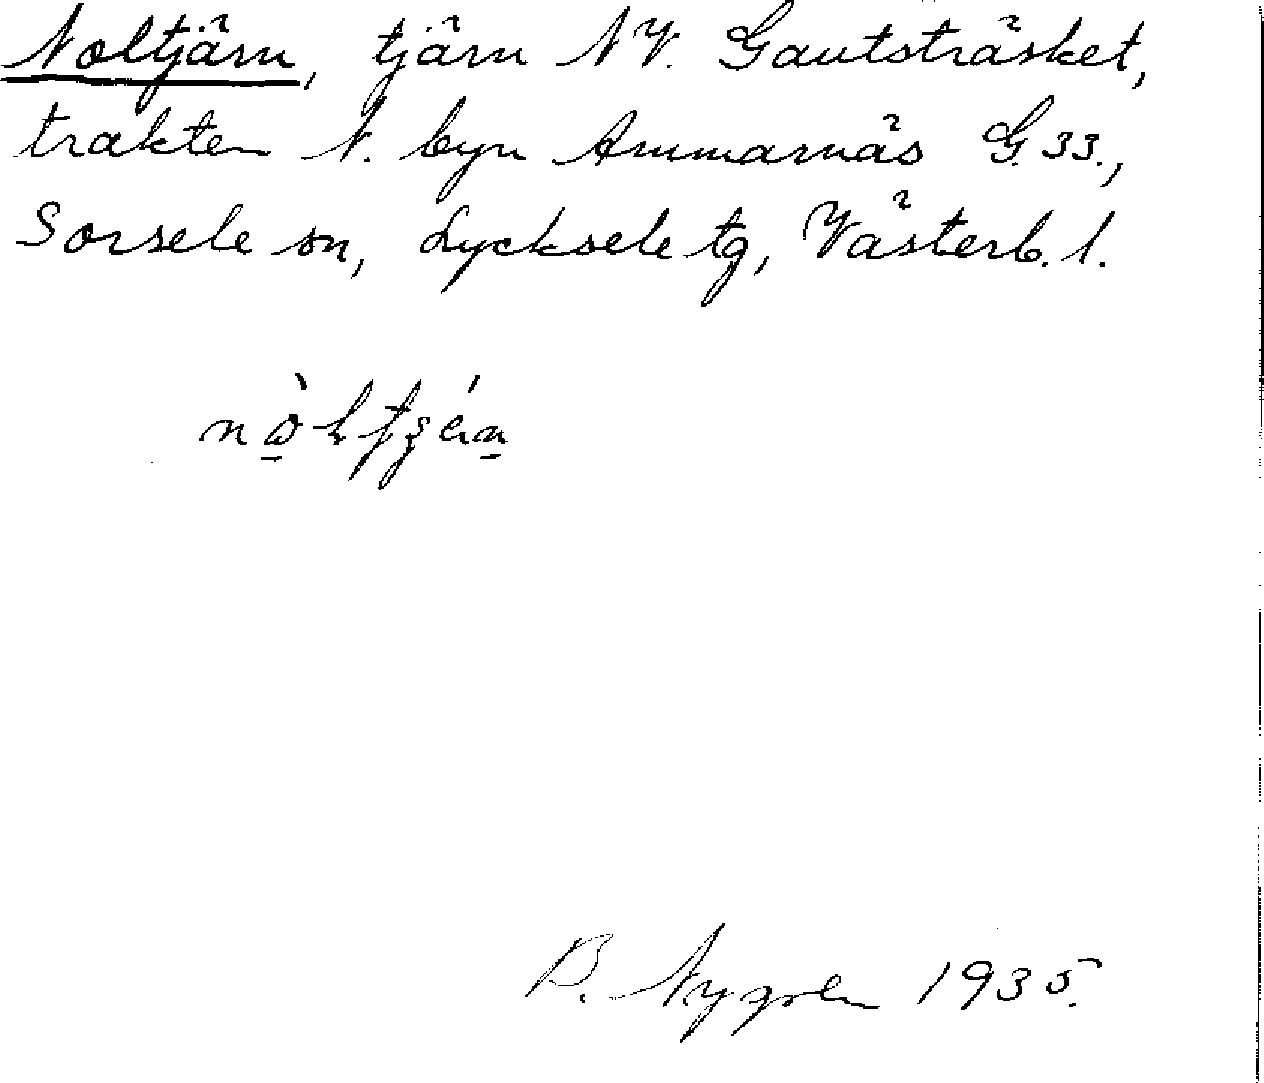 Noltjärn, tjärn NV. Gautsträsket,
trakten N. byn Ammarnäs G. 33.,
Sorsele sn, Lycksele tg, Västerb. l.
B. Nygren 1935.